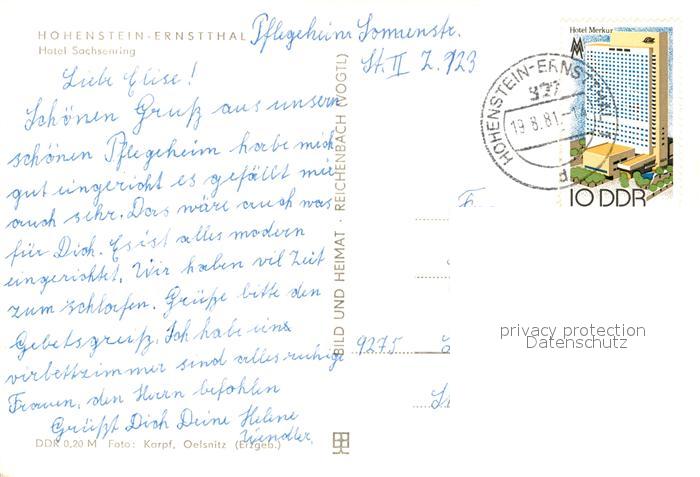 HOHENSTEIN-ERNSTTHAL
Hotel Sachsenring
Pflegeheim Sonnenstr.
St. II Z. 123
Liebe Elise!
Schönen Gruß aus unsern
schönen Pflegeheim habe mich
gut eingericht es gefällt mir
auch sehr. Das wäre auch was
für Dich. Es ist alles modern
eingerichtet. Wir haben vil Zeit
zum schlafen. Grüße bitte den
Gebetsgruß. Ich habe ein
virbettzimmer sind alles ruhige
Frauen, den Herrn befohlen
Grüßt Dich Deine Helene
Wendler.
DDR 0,20 M Foto: Karpf, Oelsnitz (Erzgeb.)
BILD UND HEIMAT · REICHENBACH (VOGTL)
Hotel Merkur
10 DDR
HOHENSTEIN-ERNSTTHAL
19.8.81
F
9275
privacy protection
Datenschutz